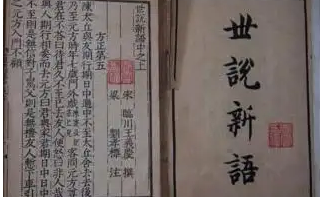 世說新語
世說新語中之上
宋 臨川王義慶 撰
梁 劉孝標 注
方正第五
陳太丘與友期行期日中過中不至太丘舍去去後
乃至元方時年七歲門外戲客問元方尊
君在不答曰待君久不至已去友人便怒曰非人哉
與人期行相委而去元方曰君與家君期日中日中
不至則是無信對子罵父則是無禮友人慚下車引
之元方入門不顧